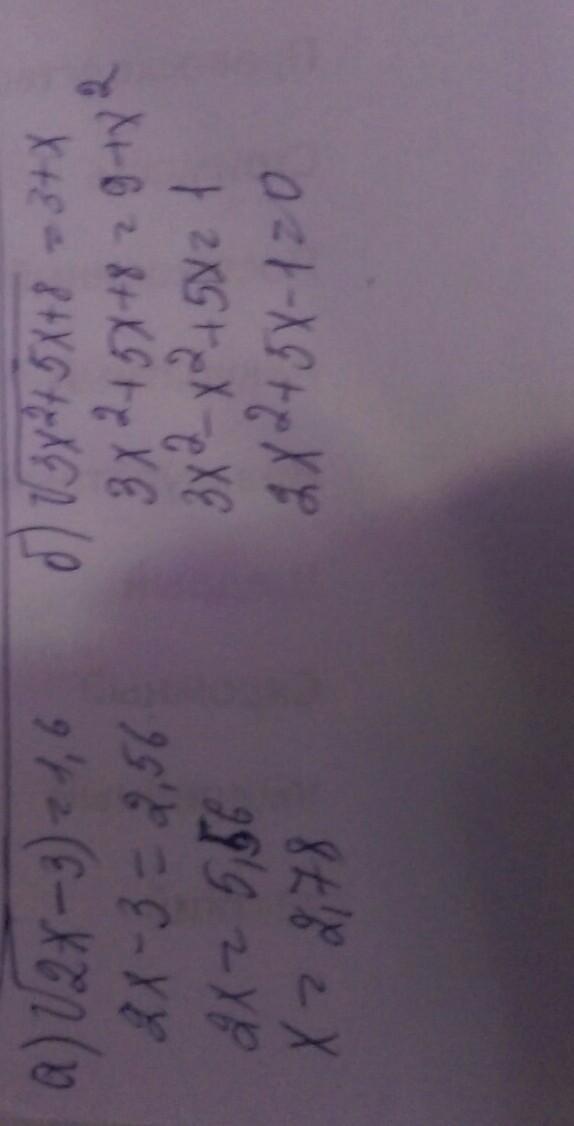 а) √(2x-3) = 1,6
2x-3 = 2,56
2x = 5,56
x = 2,78
б) √3x²+5x+8 = 3+x
3x²+5x+8 = 9+x²
3x²-x²+5x = 1
2x²+5x-1=0